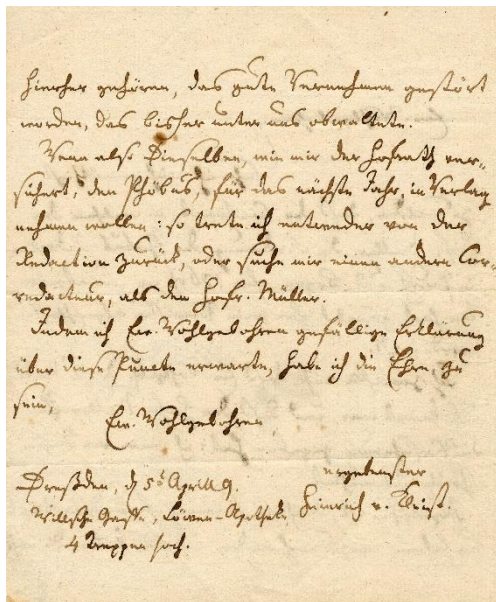 hierher gehören, das gute Vernehmen gestört
worden, das bisher unter uns obwaltete.
Wenn also Dieselben, wie mir der Hofrath ver-
sichert, den Phöbus, für das nächste Jahr, in Verlag
nehmen wollen: so trete ich entweder von der
Redaction zurück, oder suche mir einen andern Cor-
redacteur, als den Hofr. Müller.
Indem ich Ew. Wohlgebohren gefällige Erklärung
über diese Puncte erwarte, habe ich die Ehre, zu
sein,
Ew. Wohlgebohren
ergebenster
Heinrich v. Kleist.
Dreßden, d 5t Aprill 9.
Willsche Gasse, Löwen-Apotheke
4 Treppen hoch.